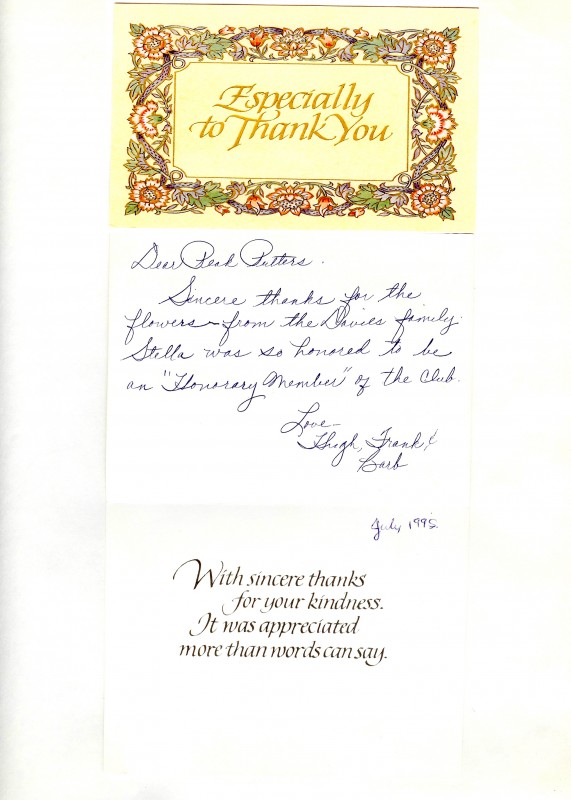 Especially
to Thank You
Dear Peak Putters.
Sincere thanks for the
flowers – from the Davies family.
Stella was so honored to be
an "Honorary Member" of the Club.
Love –
Hugh, Frank &
Barb
July 1995
With sincere thanks
for your kindness.
It was appreciated
more than words can say.